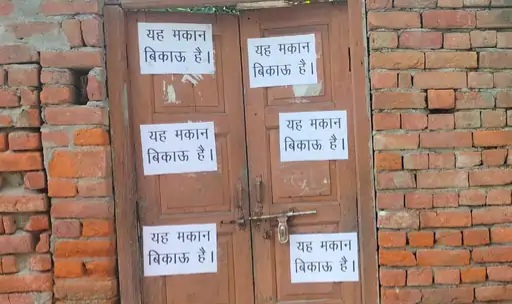 यह मकान
बिकाऊ है।
यह मकान
बिकाऊ है।
यह मकान
बिकाऊ है।
यह मकान
बिकाऊ है।
यह मकान
बिकाऊ है।
यह मकान
बिकाऊ है।